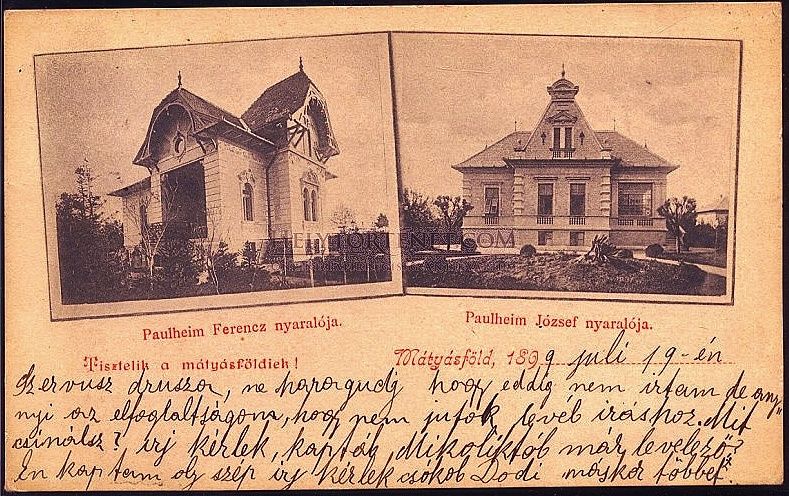 HELYTORTENET.COM
Paulheim Ferencz nyaralója.
Paulheim József nyaralója.
Tisztelik a mátyásföldiek!
Mátyásföld, 1899 juli 19-én
Szervusz drusza, ne haragudj hogy eddig nem irtam de any"
nyi az elfoglaltságom, hogy nem jutok levél iráshoz. Mit
csinálsz? irj kérlek, kaptál Mikoliktól már levelező?
Én kaptam oly szép irj kérlek csókol Dodi máskor többet.